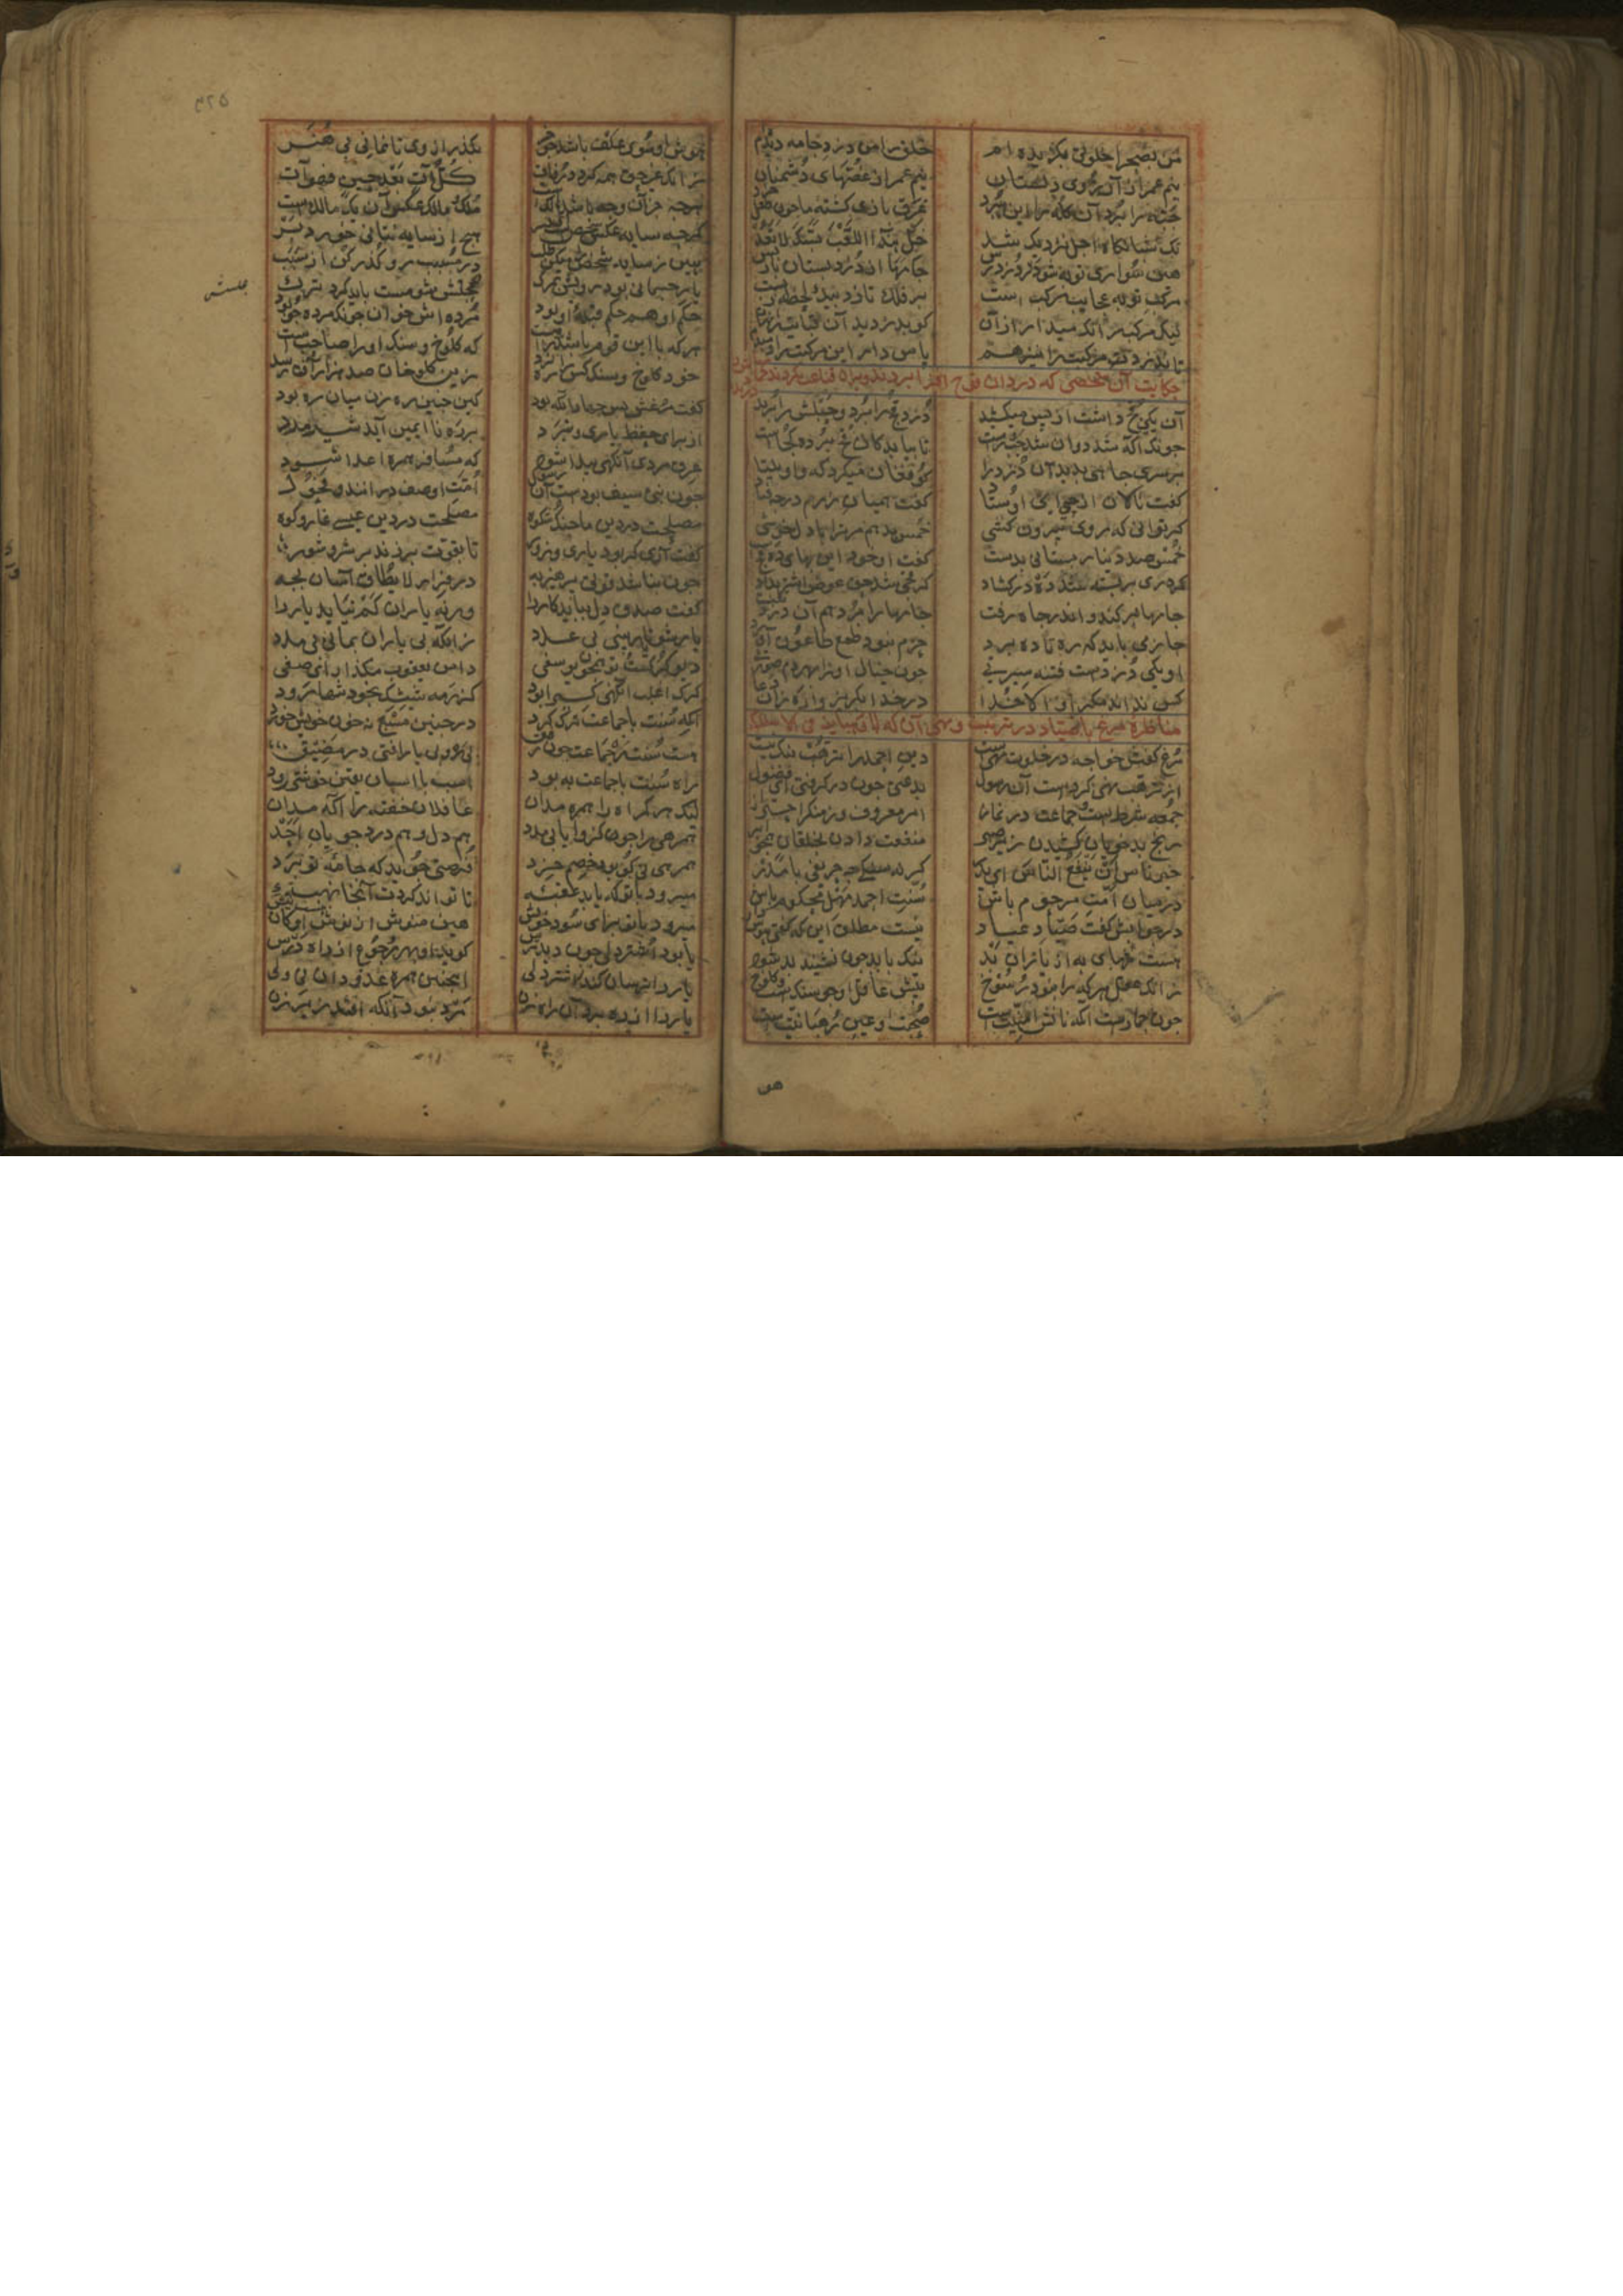 من بصحرا خلوتی بگزیده ام خلق را من دزد جامه دیده ام
نیم عمر از آرزوی دلستان نیم عمر از غصهای دشمنان
جبه را برد آن کله را این ببرد غرق بازی گشته ما چون طفل خرد
نک شبانگاه اجل نزدیک شد خل هذا اللعب بسک لا تعد
هین سوار توبه شو در دزد رس جامها از دزد بستان باز پس
مرکب توبه عجایب مرکب است بر فلک تازد بیک لحظه ز پست
لیک مرکب را نگه میدار از آن کو بدزدید آن قبایت ناگهان
تا ندزدد مرکبت را نیز هم پاس دار این مرکبت را دم بدم
حکایت آن شخصی که دزدان قوچ او را بردند و بران قناعت نکردند
آن یکی قچ داشت از پس میکشید دزد قچ را برد و حبلش را برید
چونک آگه شد دوان شد چپ و راست تا بیابد کان قچ برده کجاست
بر سر چاهی بدید آن دزد را کو فغان میکرد که واویلتا
گفت نالان از چئی ای اوستاد گفت همیان زرم در چه فتاد
گر توانی که روی بیرون کشی خمس بدهم مر ترا با دلخوشی
خمس صد دینار بستانی بدست گفت او خود این بهای ده قچست
گر دری بربسته شد ده در گشاد گر قچی شد حق عوض اشتر بداد
جامها بر کند و اندر چاه رفت جامها را برد هم آن دزد تفت
حازمی باید که ره تا ده برد حزم نبود طمع طاعون آورد
او یکی دزدست فتنه سیرتی چون خیال او را بهر دم صورتی
کس نداند مکر او الا خدا در خدا بگریز و وا ره زان دغا
مناظره مرغ با صیاد در ترهب و
مرغ گفتش خواجه در خلوت مه ایست دین احمد را ترهب نیک نیست
از ترهب نهی کردست آن رسول بدعتی چون در گرفتی ای فضول
جمعه شرطست و جماعت در نماز امر معروف و ز منکر احتراز
رنج بدخویان کشیدن زیر صبر منفعت دادن بخلقان همچو ابر
خیر ناس ان ینفع الناس ای پدر گر نه سنگی چه حریفی با مدر
در میان امت مرحوم باش سنت احمد مهل محکوم باش
در جوابش گفت صیاد عیار نیست مطلق این که گفتی هوش دار
هست تنهایی به از یاران بد نیک با بد چون نشیند بد شود
زانک عقل هر که را نبود رسوخ پیش عاقل او چو سنگست و کلوخ
چون حمارست آنکه نانش امنیت است صحبت او عین رهبانیت است
۳۲۵
بگذر از وی تا نمانی بی هنر
زانک غیر حق همه گردد رفات کل آت بعد حین فهو آت
ملک و مالک عکس آن یک مالک است
گرچه سایه عکس شخص است ای پسر هیچ از سایه نتانی خورد بر
هین ز سایه شخص را میکن طلب در مسبب رو گذر کن از سبب
یار جسمانی بود رویش بمرگ صحبتش شومست باید کرد ترک
حکم او هم حکم قبله او بود مرده اش خوان چونک مرده جو بود
هر که با این قوم باشد راهبست که کلوخ و سنگ او را صاحبست
خود کلوخ و سنگ کس را ره نزد زین کلوخان صد هزار آفت رسد
گفت مرغش پس جهاد آنگه بود کین چنین ره زن میان ره بود
از برای حفظ یاری و نبرد بر ره ناایمن آید شیرمرد
عرق مردی آنگهی پیدا شود که مسافر همره اعدا شود
چون نبی سیف بودست آن رسول امت او صفدرانند و فحول
مصلحت در دین ما جنگ و شکوه مصلحت در دین عیسی غار و کوه
تا بقوت برزند بر شر و شور
چون نباشد قوتی پرهیز به در فرار لا یطاق آسان بجه
گفت صدق دل بباید کار را ورنه یاران کم نیاید یار را
یار شو تا یار بینی بی عدد زانکه بی یاران بمانی بی مدد
دیو گرگست و تو همچون یوسفی دامن یعقوب مگذار ای صفی
گرگ اغلب آنگهی گیرا بود کز رمه شیشک بخود تنها رود
آنکه سنت با جماعت ترک کرد در چنین مسبع نه خون خویش خورد
هست سنت ره جماعت چون رفیق بی ره و بی یار افتی در مضیق
راه سنت با جماعت به بود اسب با اسبان یقین خوشتر رود
لیک هر گمراه را همره مدان غافلان خفته را آگه مدان
همرهی را جو کزو یابی مدد هم دل و هم درد جویان احد
همرهی نی کو بود خصم خرد فرصتی جوید که جامه تو برد
میرود با تو که یابد عقبه تا تواند کردت آنجا نهبه
میرود با تو برای سود خویش هین منوش از نوش او کان هست نیش
یا بود اشتردلی چون دید ترس گوید او بهر رجوع از راه درس
یار را ترسان کند ز اشتردلی اینچنین همره عدو دان نی ولی